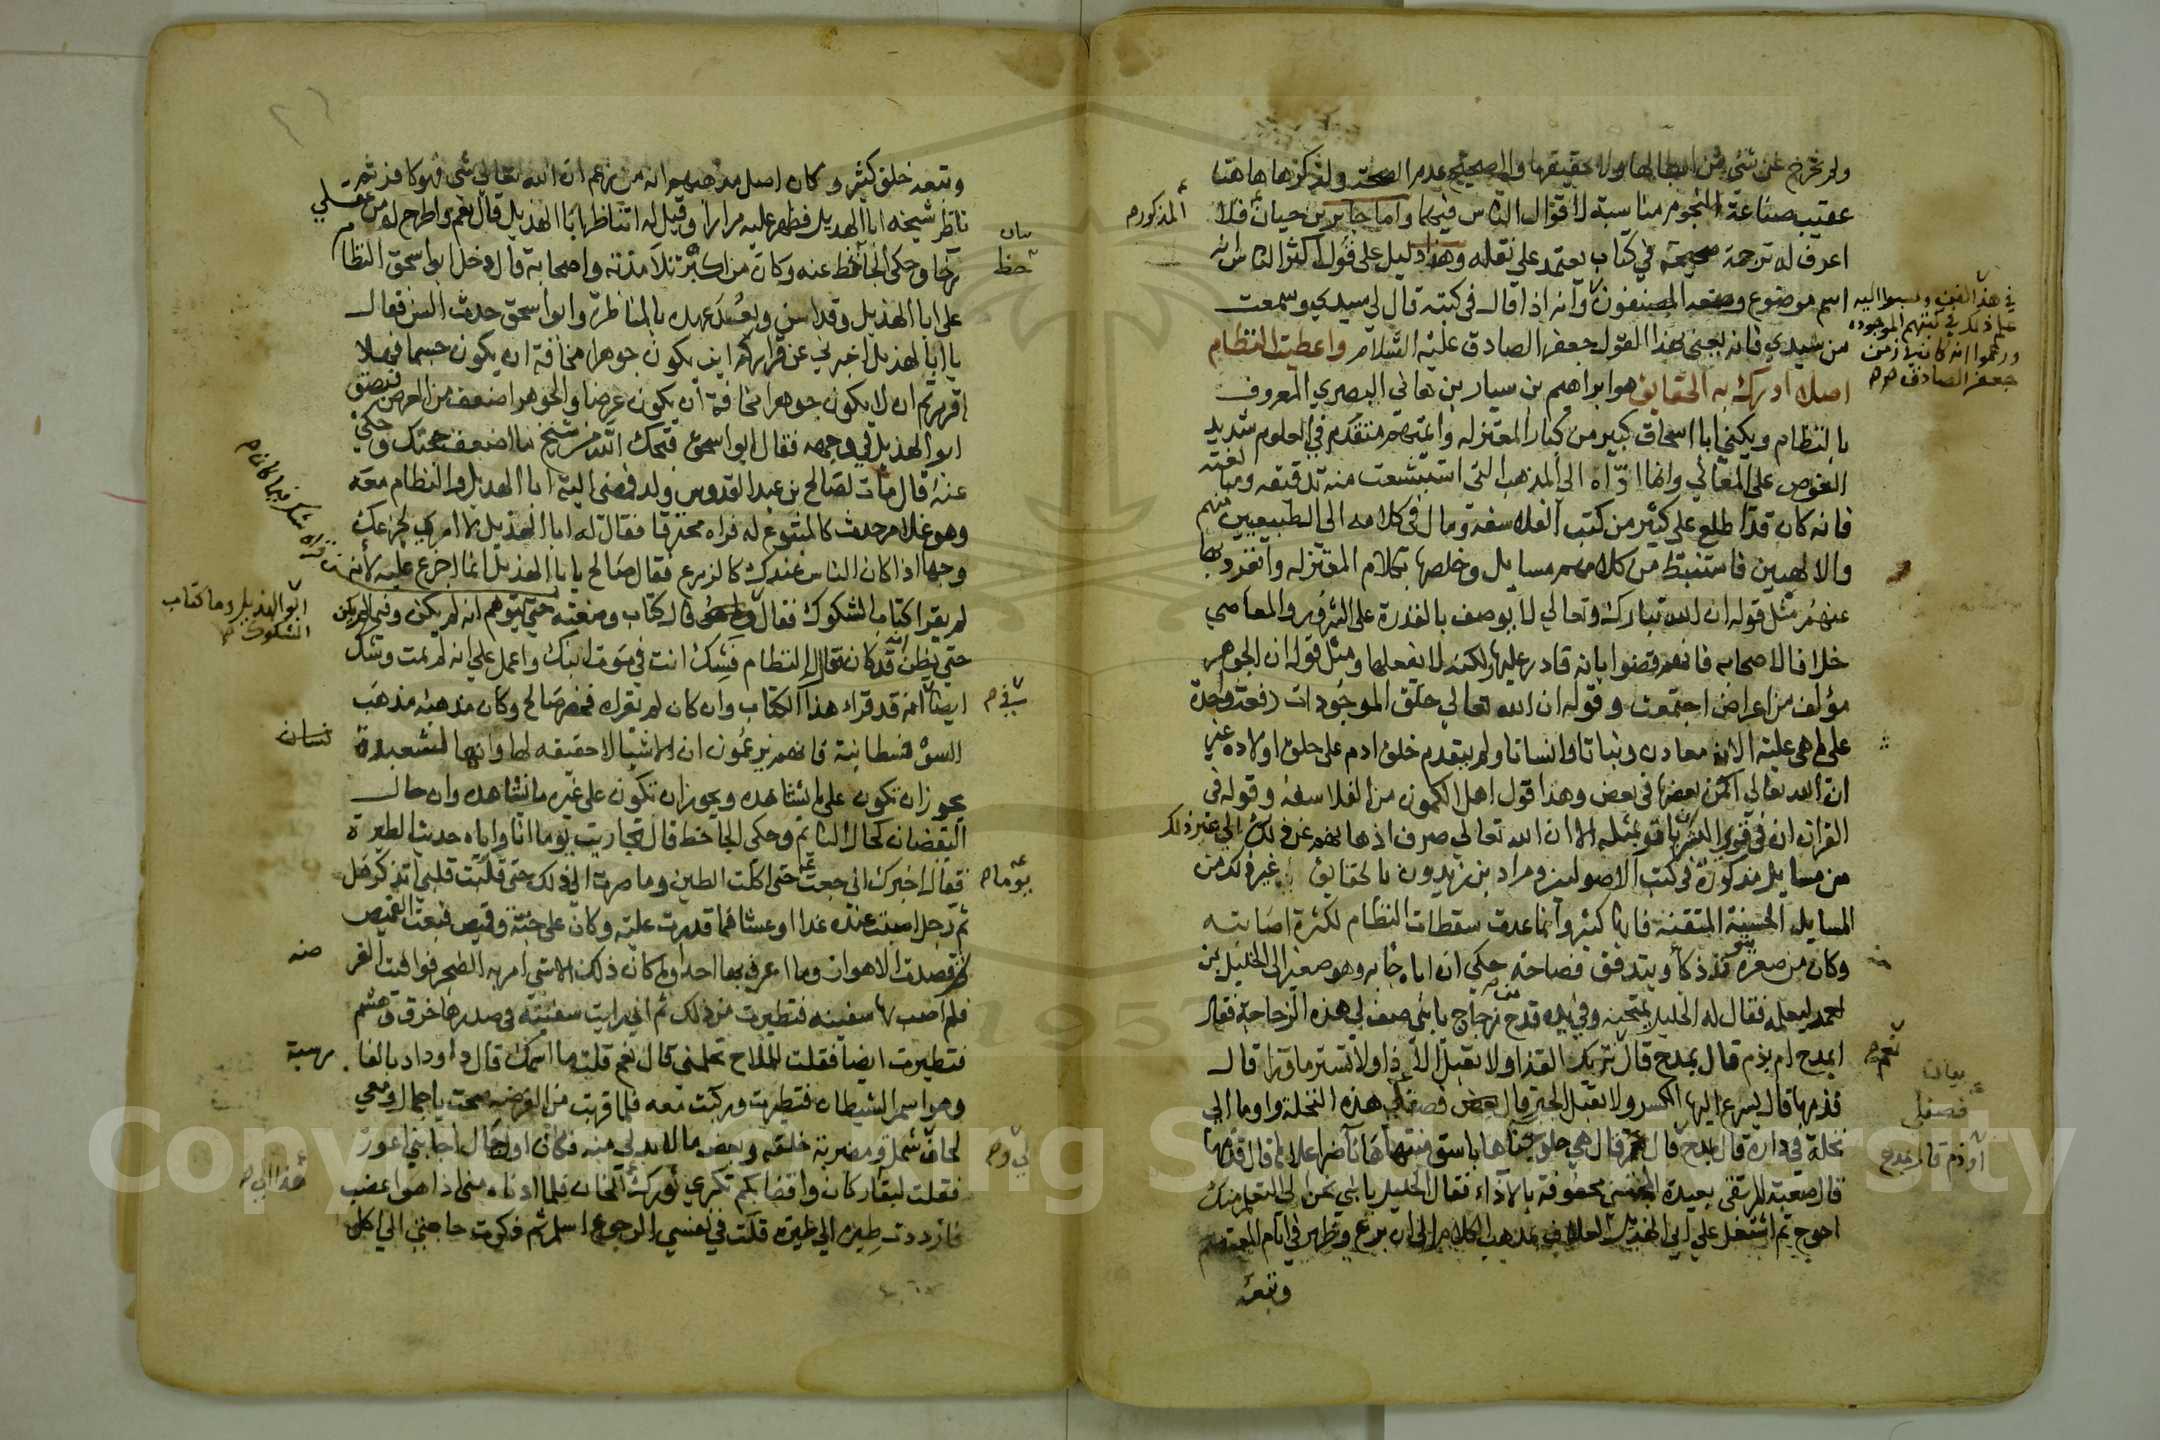 ولم تخرج عن شيء من ابطالها ولا تحقيقها والصحيح عدم الصحة ولذكرها هاهنا
عقيب صناعة النجوم مناسبة لاقوال الناس فيهما واما جابر بن حيان فلا
المذكور صح
اعرف له ترجمة صحيحة في كتاب يعتمد على نقله وهذا دليل على قول اكثر الناس انه
اسم موضوع وضعه المصنفون وانه اذا قال في كتبه قال لي سيدي وسمعت
في هذا الفن ونسبوا اليه
علم ذلك في كتبهم الموجودة
وزعموا انه كان في زمن
جعفر الصادق صح
من سيدي فانه يعني بهذا القول جعفر الصادق عليه السلام واعطيت النظام
اصلا ادرك به الحقايق هو ابراهيم بن سيار بن هاني البصري المعروف
بالنظام ويكنى ابا اسحاق كبير من كبار المعتزله وائمتهم متقدم في العلوم شديد
الغوص على المعاني وانما اداه الى المذهب التي استبشعت منه تدقيقه ومبالغته
فانه كان قد اطلع على كثير من كتب الفلاسفة ومال في كلامه الى الطبيعيين منهم
والالهيين فاستنبط من كلامهم مسايل وخلصها بكلام المعتزله وانفرد بها
عنهم مثل قوله ان الله تبارك وتعالى لا يوصف بالقدرة على الشرور والمعاصي
خلافا لاصحابه فانهم قضوا بانه قادر عليها ولكنه لا يفعلها ومثل قوله ان الجوهر
مؤلف من اعراض اجتمعت وقوله ان الله تعالى خلق الموجودات دفعة واحدة
على ما هي عليه الان معادن ونباتا وانسانا ولم يتقدم خلق ادم على خلق اولاده غير
ان الله تعالى اكمن بعضها في بعض وهذا قول اهل الكمون من الفلاسفة وقوله في
القران ان في قوى البشر ان ياتو بمثله الا ان الله تعالى صرف اذهانهم عن ذلك الى غير ذلك
من مسايل مذكورة في كتب الاصوليين ومراد بن زيدون بالحقايق غير ذلك من
المسايل الحسنة المتقنة فانها كثيرة وانما عدت سقطات النظام لكثرة اصابته
وكان من صغره يتوقد ذكأ ويتدفق فصاحة حكي ان اباه جا به وهو صغير الى الخليل بن
احمد ليعلمه فقال له الخليل يمتحنه وفي يده قدح زجاج يا بني صف لي هذه الزجاجة فقال
ابمدح ام بذم قال بمدح قال تريك القذا ولا تقبل الاذى ولا تستر ما ورا قال
نعم صح
فذمها قال يسرع اليها الكسر ولا تقبل الجبر قال فصف لي هذه النخلة واوما الى
فصف لي
نخلة في داره قال بمدح قال هي حلو مجتناها باسق منتهاها ناضر اعلاها قال فذمها
او ذم قال بمدح
قال صعبة المرتقى بعيدة المجتنى محفوفة بالاذاء فقال الخليل يا بني نحن الى التعلم منك
احوج ثم اشتغل على ابي الهذيل العلاف بمذهب الكلام الى ان برع وظهر في ايام المعتصم
وتبعه
وتبعه خلق كثير وكان اصل مذهبهم انه من زعم ان الله تعالى شي فهو كافر ثم
ناظر شيخه ابا الهذيل فظهر عليه مرارا وقيل له اتناظر ابا الهذيل قال نعم واطرح له من عقلي
رخا وحكى الجاحظ عنه وكان من اكبر تلامذته واصحابه قال دخل ابو اسحق النظام
على ابا الهذيل وقد اسن وبعد عهده بالمناظرة وابو اسحق حدث السن فقال
يا ابا الهذيل اخبرني عن قراركم ان يكون جوهرا مخافة ان يكون جسما فهلا
اقررتم ان لا يكون جوهرا مخافة ان يكون عرضا والجوهر اضعف من العرض فبصق
ابو الهذيل في وجهه فقال ابو اسحق قبحك الله من شيخ ما اضعف حجتك وحكي
عنه قال مات لصالح بن عبد القدوس ولد فمضى اليه ابا الهذيل والنظام معه
وهو غلام حدث كالمتبوع له فراه محترقا فقال له ابا الهذيل لا ادري لجزعك
وجها اذا كان الناس عندك كالزرع فقال صالح يا با الهذيل انما اجزع عليه لانه
لم يقرا كتاب الشكوك فقال وما هو قال كتاب وضعته حتى يتوهم انه لم يكن وفيما لم يكن
ابو الهذيل وما كتاب
الشكوك
حتى يظن انه قد كان فقال النظام فشك انت في موت ابنك واعمل على انه لم يمت وشك
ايضا انه قد قراء هذا الكتاب وان كان لم يقراه فحصر صالح وكان مذهبه مذهب
السوفسطائية فانهم يزعمون ان الاشيا لا حقيقه لها وانها
يجوز ان تكون على ما نشاهده ويجوز ان تكون على غير ما نشاهده وان حال
اليقضان كحال النائم وحكى الجاحظ قال تجاريت يوما انا واياه حديث الطيرة
فقال اخبرك اني جعت حتى اكلت الطين وما صرت الى ذلك حتى قلبت قلبي اتذكر هل
يوما صح
ثم رجل اصيب عنده غدا او عشا فما قدرت عليه وكان علي جبة وقميص فبعت القميص
ثم قصدت الاهواز وما اعرف بها احدا وما كان ذلك الا شي امر به الضجر فوافيت الفر
ضه
فلم اصب بها سفينه فتطيرت من ذلك ثم اني رايت سفينة في صدرها خرق وهشم
فتطيرت ايضا فقلت للملاح تحملني قال نعم قلت ما اسمك قال داوداد بالفا
رسية
وهو اسم الشيطان فتطيرت وركبت معه فلما قربت من الفرضه صحت يا حمال ومعي
لحاف سمل ومضربة خلقه وبعض ما لابد لي منه فكان اول حمال اجابني اعور
فقلت لبقار كان واقفا بكم تكري ثورك الى الخان فلما ادناه مني اذا هو اعضب
هذا الى صح
فازددت طيره الى طيره قلت في نفسي الرجوع اسلم ثم ذكرت حاجتي الى اكل